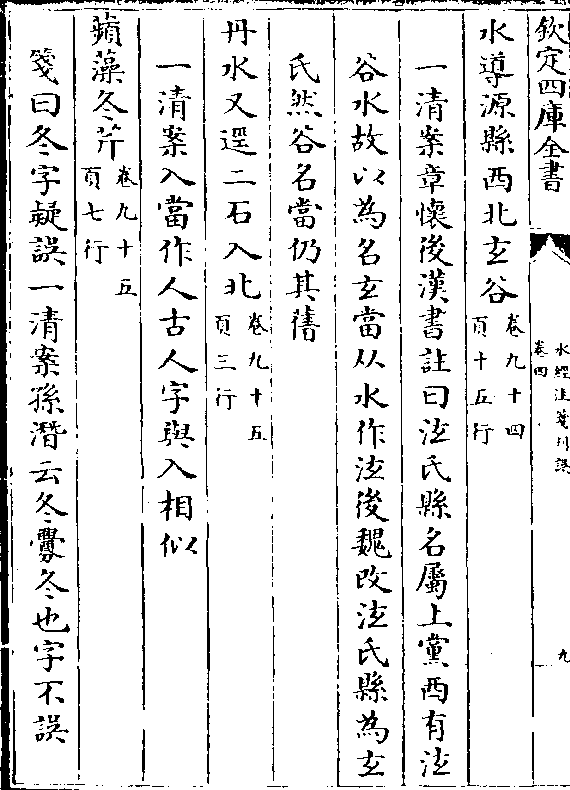 欽定四庫全書
水經注箋刋誤
卷四
九
水導源縣西北玄谷卷九十四
頁十五行
一清案章懷後漢書註曰泫氏縣名屬上黨西有泫
谷水故以為名玄當从水作泫後魏改泫氏縣為玄
氏然谷名當仍其舊
丹水又逕二石入北卷九十五
頁三行
一清案入當作人古人字與入相似
蘋藻冬芹卷九十五
頁七行
箋曰冬字疑誤一清案孫潛云冬虋冬也字不誤